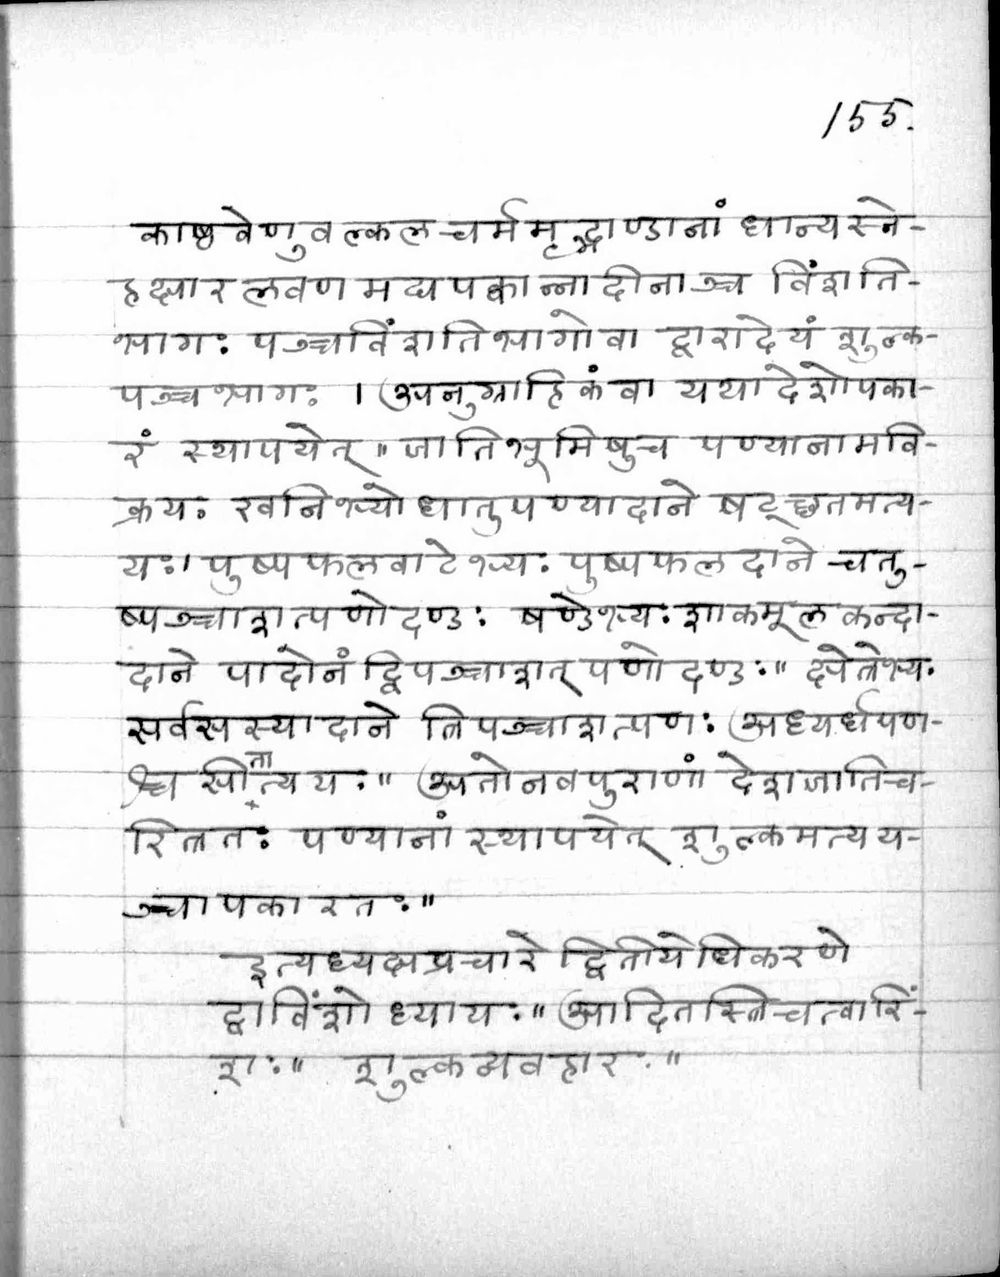 155.
काष्ठवेणुवल्कलचर्ममृद्भाण्डानां धान्यस्ने-
हक्षारलवणमद्यपक्वान्नादीनाञ्च विंशति-
भागः पञ्चविंशतिभागो वा द्वारादेयं शुल्क-
पञ्चभागः । अनुग्राहिकं वा यथादेशोपका-
रं स्थापयेत् ॥ जातिभूमिषु च पण्यानामवि-
क्रयः खनिभ्यो धातुपण्यादाने षट्छतमत्य-
यः। पुष्पफलवाटेभ्यः पुष्पफलदाने चतु-
ष्पञ्चाशत्पणो दण्डः षण्डेभ्यः शाकमूलकन्दा-
दाने पादोनं द्विपञ्चाशत् पणो दण्डः॥ क्षेत्रेभ्यः
सर्वसस्यादाने त्रिपञ्चाशत्पणः अध्यर्धपण-
श्च सीतात्ययः॥ अतो नवपुराणां देशजातिच-
रित्रतः पण्यानां स्थापयेत् शुल्कमत्यय-
ञ्चापकारतः॥
इत्यध्यक्षप्रचारे द्वितीयेधिकरणे
द्वाविंशोध्यायः॥ आदितस्त्रिचत्वारिं-
शः॥ शुल्कव्यवहारः॥